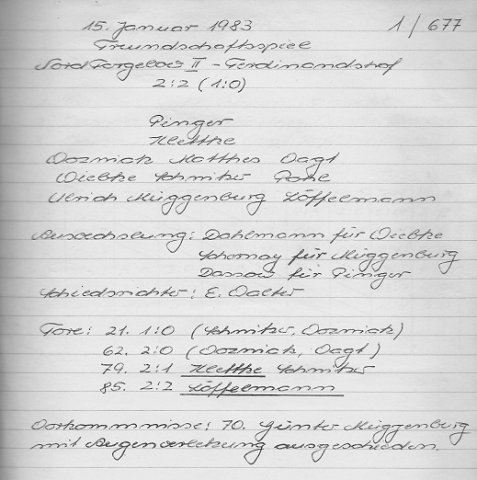 15. Januar 1983 1/677
Freundschaftsspiel
Nord Torgelow II - Ferdinandshof
2:2 (1:0)
Pinger
Klettke
Wozniak Matthes Vagt
Wiebke Schmitzer
Ulrich Müggenburg Löffelmann
Auswechslung: Dahlmann für Wiebke
Schornay für Müggenburg
Dassow für Pinger
Schiedsrichter: E. Walter
Tore: 21. 1:0 (Schmitzer, Wozniak)
62. 2:0 (Wozniak, Vagt)
79. 2:1 Klettke Schmitzer
85. 2:2 Löffelmann
Vorkommnisse: 70. Günter Müggenburg
mit Augenverletzung ausgeschieden.